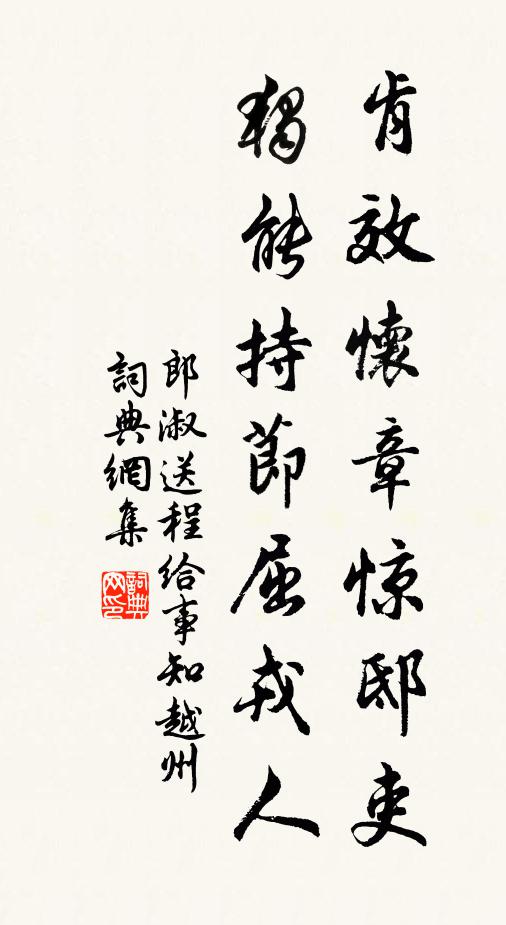 肯效懷章惊邸吏
獨能持節屈戎人
郎淑送程给事知越州
詞典網集
詞典网印